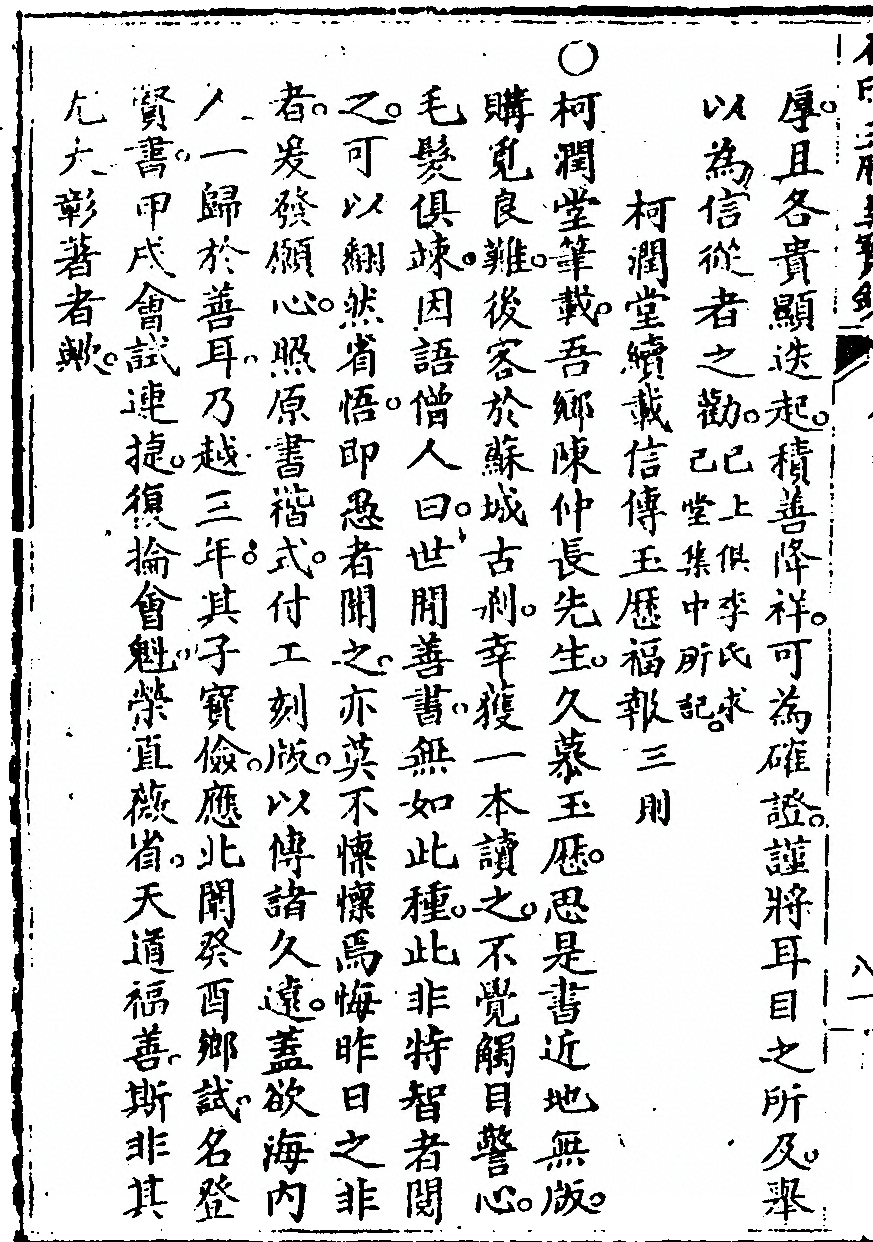 厚。且各貴顯迭起。積善降祥。可為確證。謹將耳目之所及。舉
以為信從者之勸。已上俱李氏求
已堂集中所記。
柯潤堂續載信傳玉歷福報三則
○柯潤堂筆載。吾鄉陳仲長先生。久慕玉歷。思是書近地無版。
購覓良難。後客於蘇城古刹。幸獲一本讀之。不覺觸目警心。
毛髮俱竦。因語僧人曰。世間善書。無如此種。此非特智者閱
之。可以翻然省悟。即愚者聞之。亦莫不懍懍焉悔昨日之非
者。爰發願心。照原書楷式。付工刻版。以傳諸久遠。蓋欲海內
人一歸於善耳。乃越三年。其子寶儉。應北闈癸酉鄉試。名登
賢書。甲戌會試連捷。復掄會魁。榮直薇省。天道福善。斯非其
尤大彰著者歟。